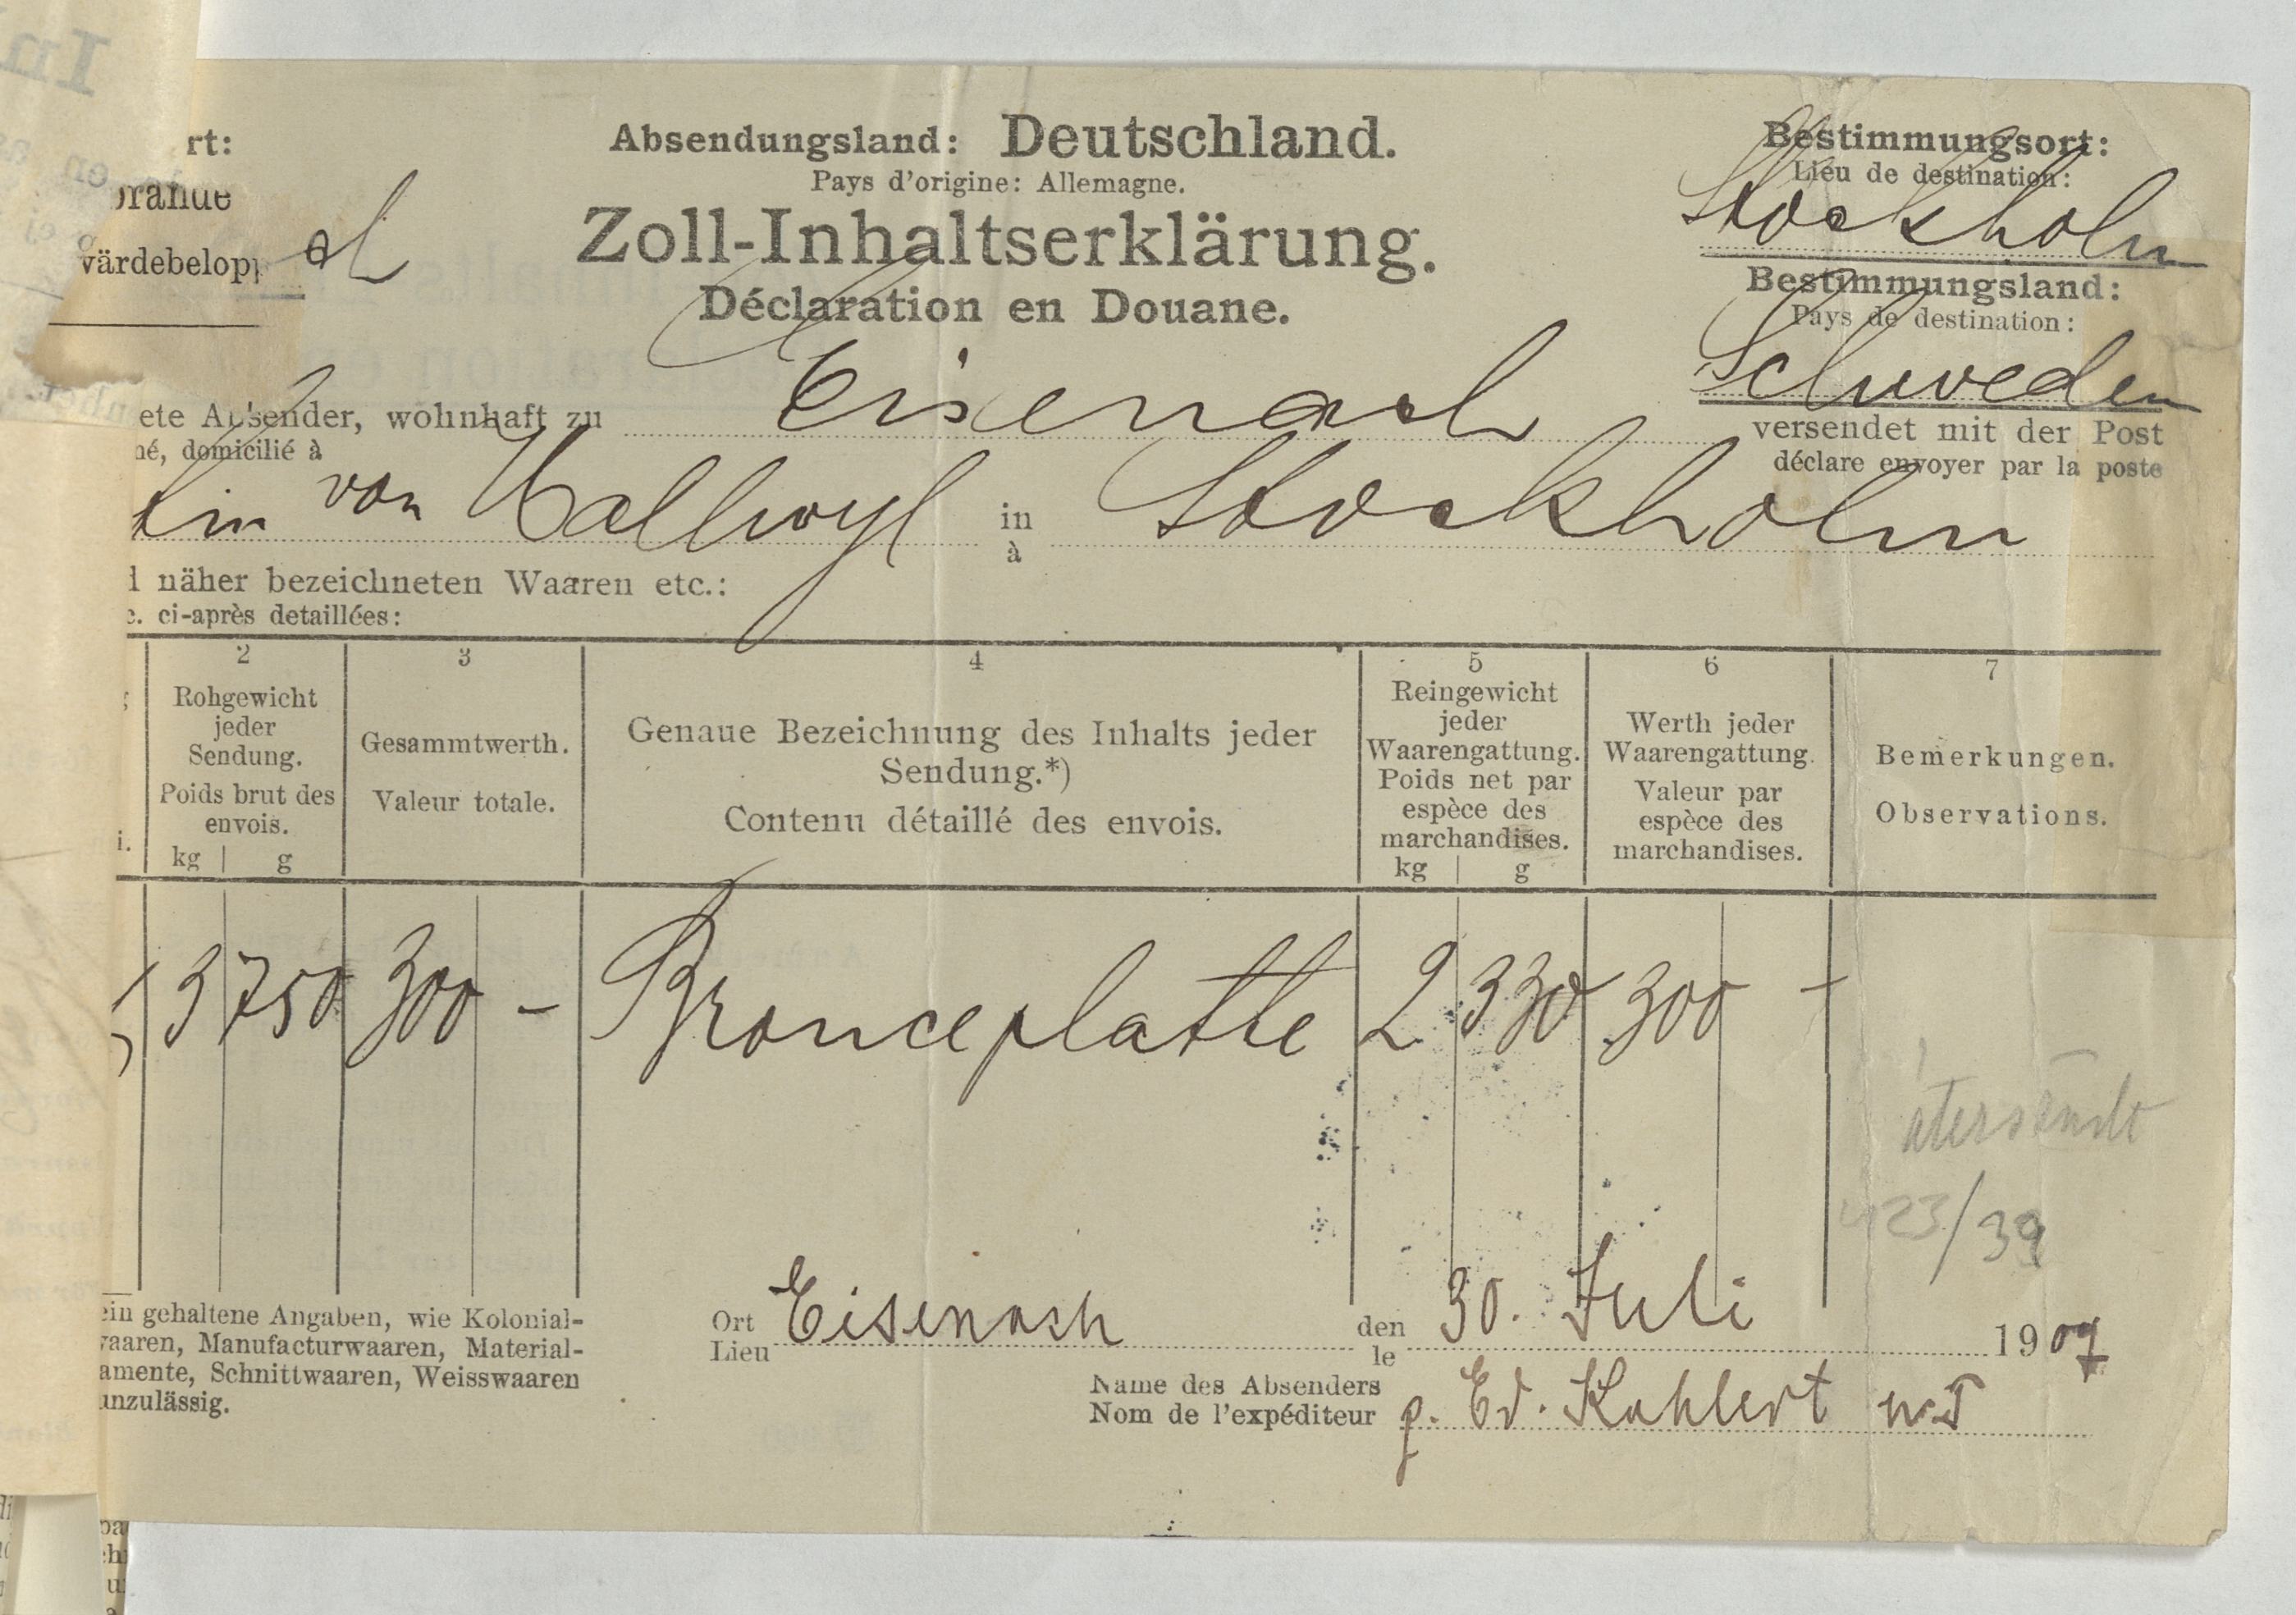 rt:
värdebelopp
Absendungsland: Deutschland.
Pays d'origine: Allemagne.
Zoll-Inhaltserklärung.
Déclaration en Douane.
Bestimmungsort:
Lieu de destination:
Stockholm
Bestimmungsland:
Pays de destination:
Schweden
ete Absender, wohnhaft zu Eisenach versendet mit der Post
né, domicilié à déclare envoyer par la poste
tin von Hallwyl in Stockholm
à
d näher bezeichneten Waaren etc.:
c. ci-après detaillées:
2
Rohgewicht
jeder
Sendung.
Poids brut des
envois.
kg g
3
Gesammtwerth.
Valeur totale.
4
Genaue Bezeichnung des Inhalts jeder
Sendung.*)
Contenu détaillé des envois.
5
Reingewicht
jeder
Waarengattung.
Poids net par
espèce des
marchandises.
kg g
6
Werth jeder
Waarengattung.
Valeur par
espèce des
marchandises.
7
Bemerkungen.
Observations.
3 750 300 - Bronceplatte 2 330 300 -
återsändt
423/39
ein gehaltene Angaben, wie Kolonial-
waaren, Manufacturwaaren, Material-
amente, Schnittwaaren, Weisswaaren
unzulässig.
Ort Eisenach den 30. Juli 1907
Lieu le
Name des Absenders
Nom de l'expéditeur p. Ed. Kahlert